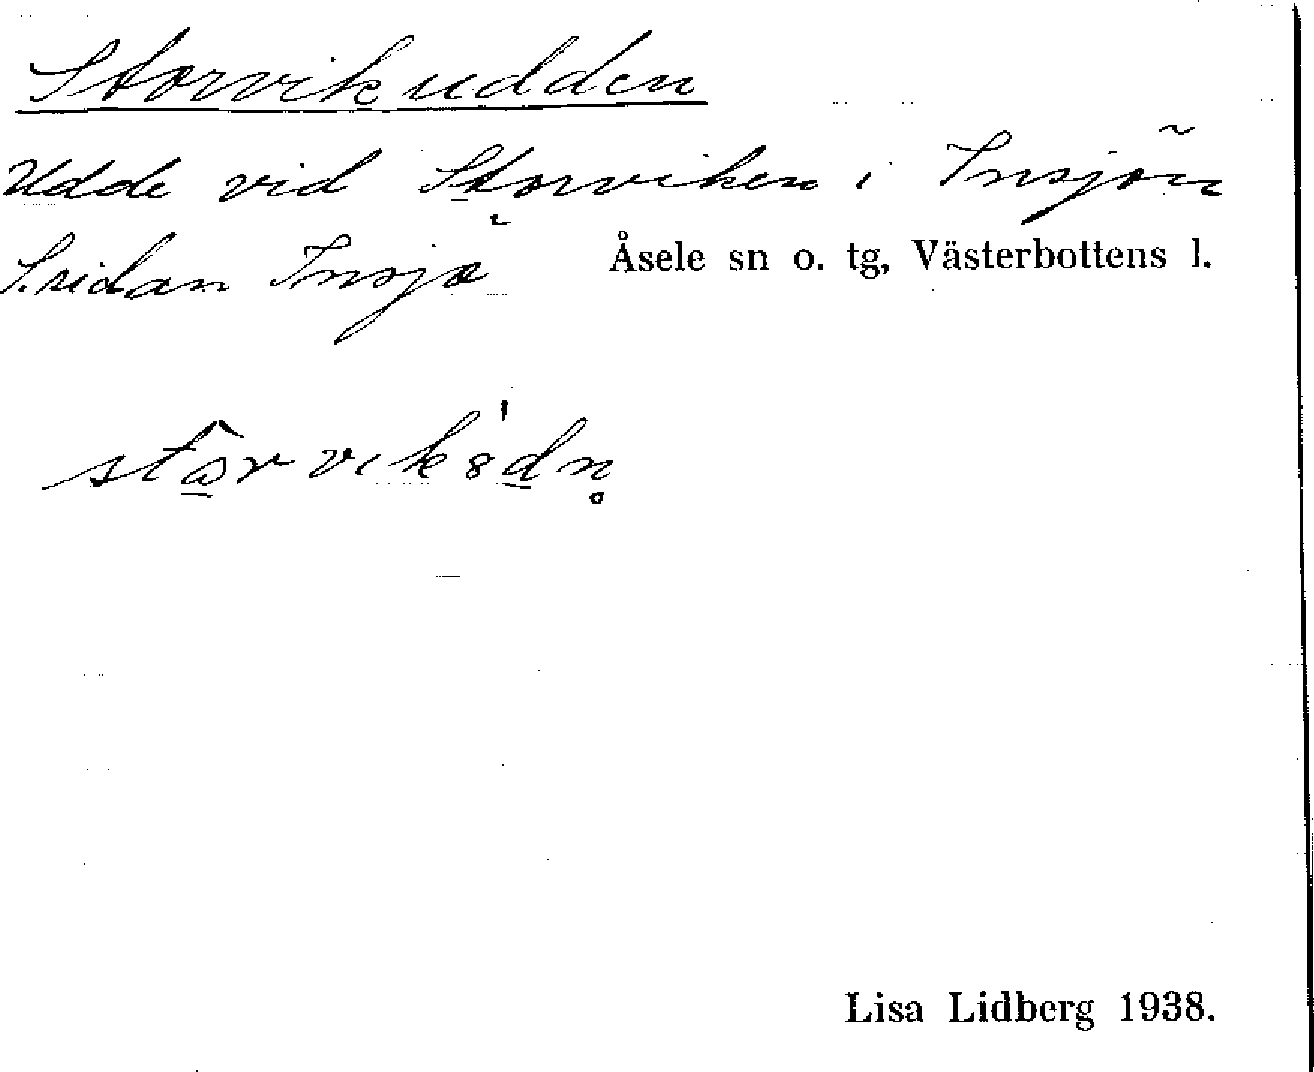 Storvikudden
Udde vid Storviken i Insjön
S. sidan Insjö
Åsele sn o. tg, Västerbottens l.
Lisa Lidberg 1938.